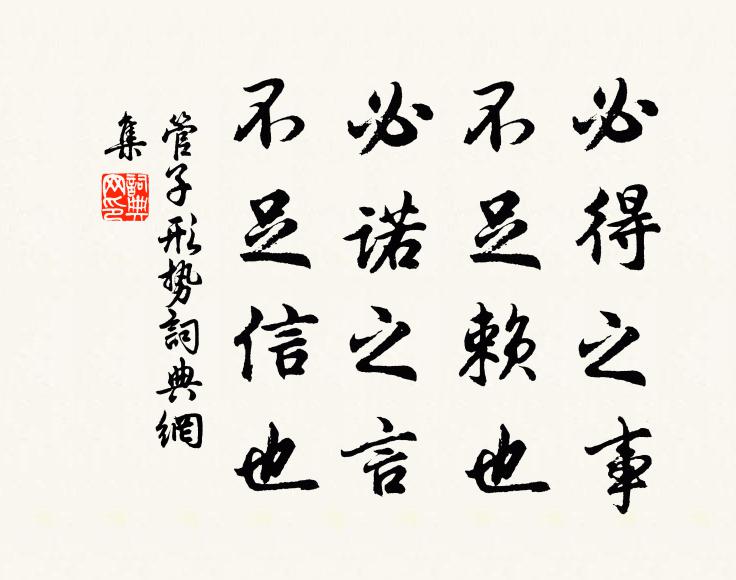 必得之事
不足赖也
必诺之言
不足信也
管子形势詞典網
集
詞典
网印